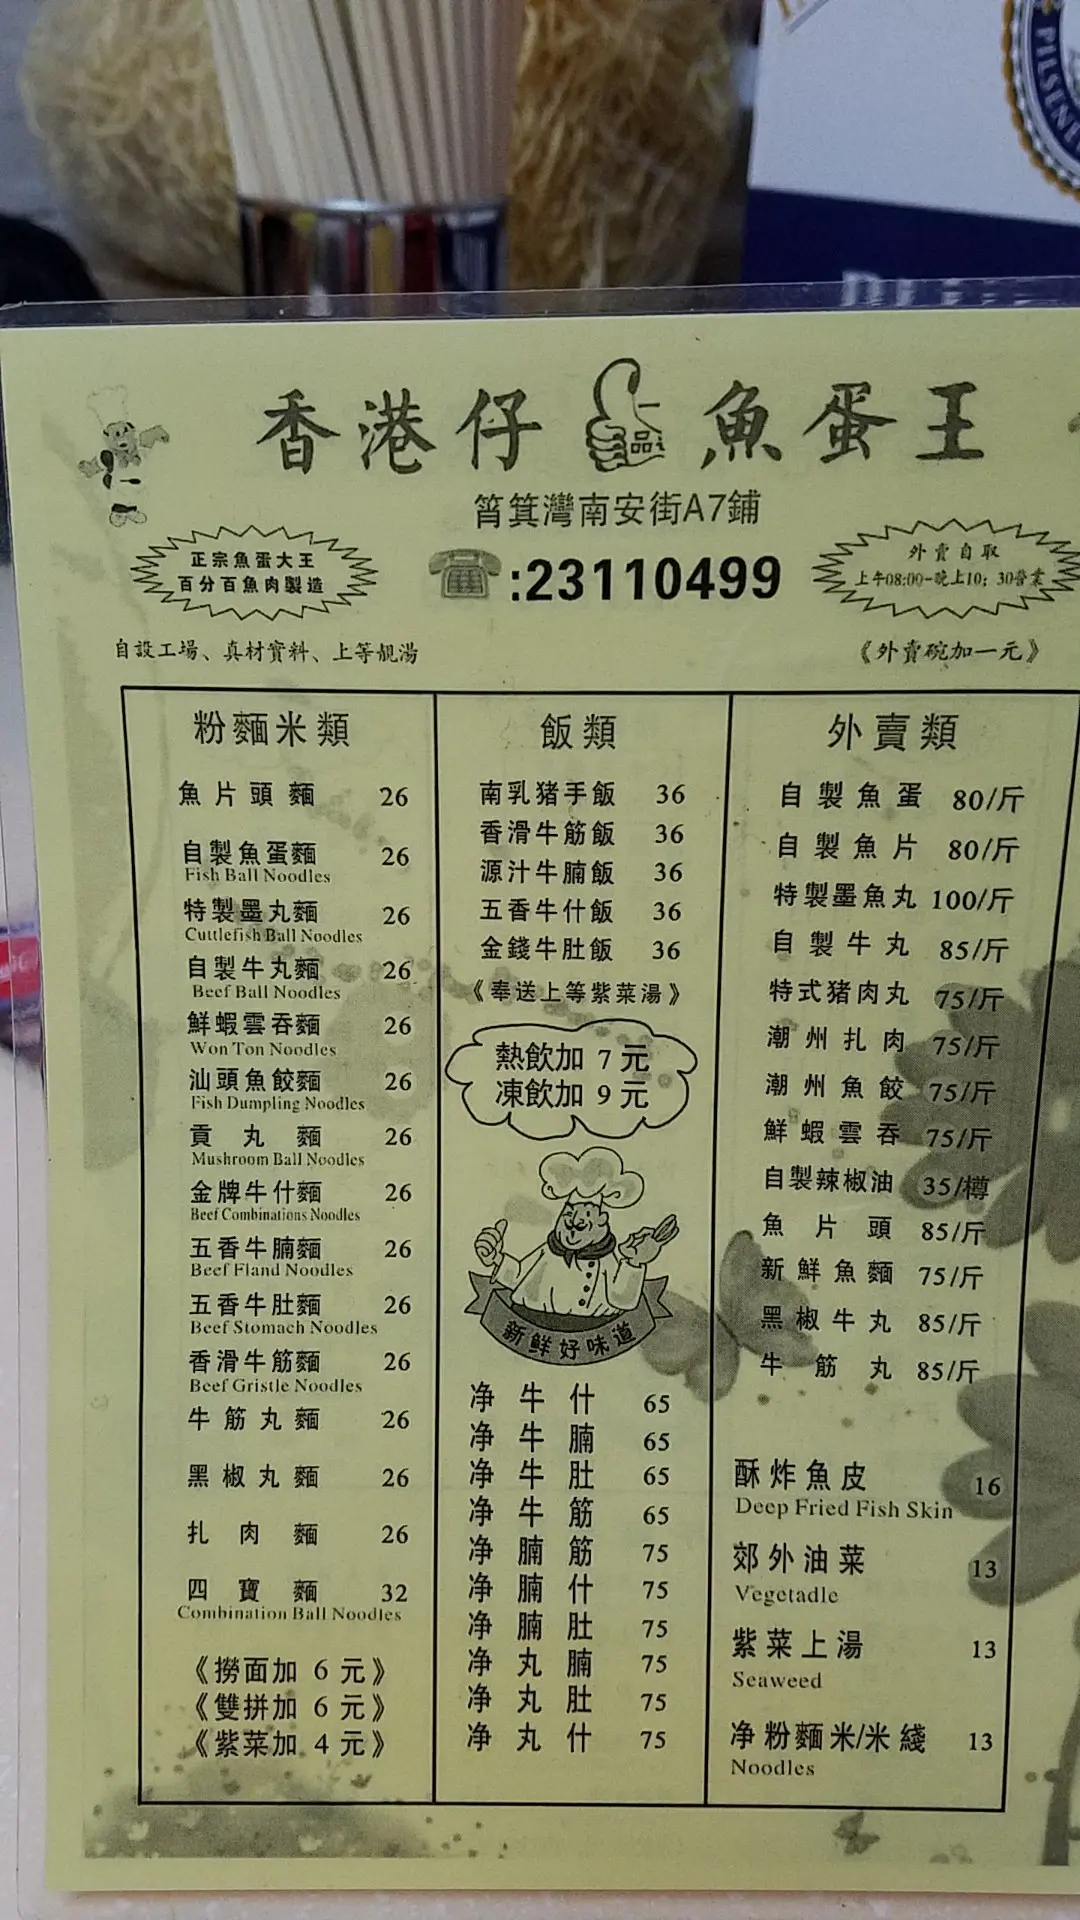 PILSENE
香港仔 魚蛋王
品
筲箕灣南安街A7鋪
正宗魚蛋大王
百分百魚肉製造
:23110499
外賣自取
上午08:00-晚上10:30營業
自設工場、真材實料、上等靚湯
《外賣碗加一元》
粉麵米類
魚片頭麵 26
自製魚蛋麵 26
Fish Ball Noodles
特製墨丸麵 26
Cuttlefish Ball Noodles
自製牛丸麵 26
Beef Ball Noodles
鮮蝦雲吞麵 26
Won Ton Noodles
汕頭魚餃麵 26
Fish Dumpling Noodles
貢丸麵 26
Mushroom Ball Noodles
金牌牛什麵 26
Beef Combinations Noodles
五香牛腩麵 26
Beef Fland Noodles
五香牛肚麵 26
Beef Stomach Noodles
香滑牛筋麵 26
Beef Gristle Noodles
牛筋丸麵 26
黑椒丸麵 26
扎肉麵 26
四寶麵 32
Combination Ball Noodles
《撈面加 6 元》
《雙拼加 6 元》
《紫菜加 4 元》
飯類
南乳猪手飯 36
香滑牛筋飯 36
源汁牛腩飯 36
五香牛什飯 36
金錢牛肚飯 36
《奉送上等紫菜湯》
熱飲加 7 元
凍飲加 9 元
新鮮好味道
净牛什 65
净牛腩 65
净牛肚 65
净牛筋 65
净腩筋 75
净腩什 75
净腩肚 75
净丸腩 75
净丸肚 75
净丸什 75
外賣類
自製魚蛋 80/斤
自製魚片 80/斤
特製墨魚丸 100/斤
自製牛丸 85/斤
特式猪肉丸 75/斤
潮州扎肉 75/斤
潮州魚餃 75/斤
鮮蝦雲吞 75/斤
自製辣椒油 35/樽
魚片頭 85/斤
新鮮魚麵 75/斤
黑椒牛丸 85/斤
牛筋丸 85/斤
酥炸魚皮 16
Deep Fried Fish Skin
郊外油菜 13
Vegetadle
紫菜上湯 13
Seaweed
净粉麵米/米綫 13
Noodles